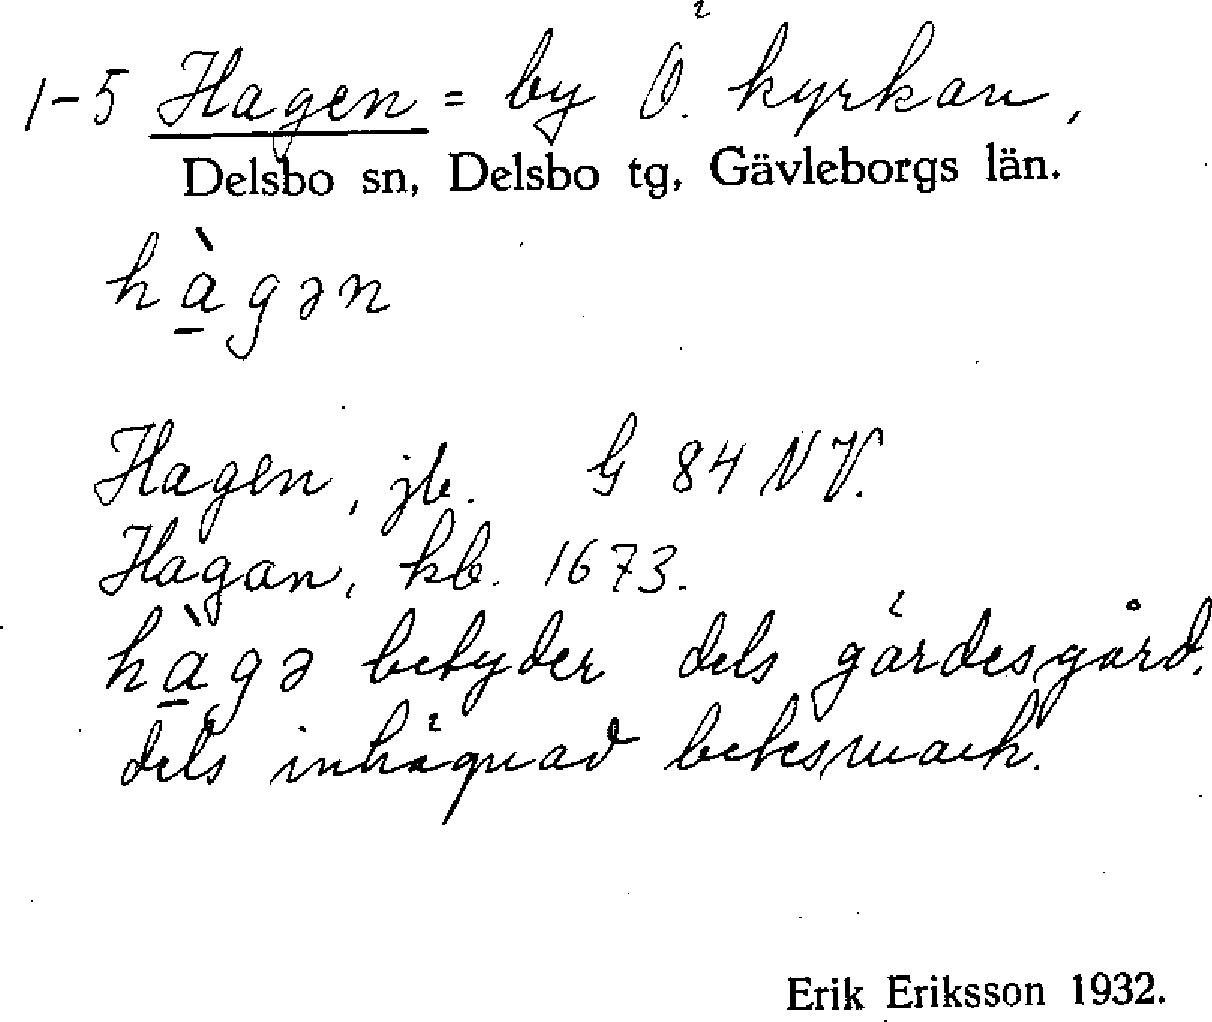 1-5 Hagen = by Ö. kyrkan,
Delsbo sn, Delsbo tg, Gävleborgs län.
hà̱gən
Hagen, jb. G 84 NV.
Hagan, kb. 1673.
hà̱gə betyder dels gärdesgård,
dels inhägnad betesmark.
Erik Eriksson 1932.